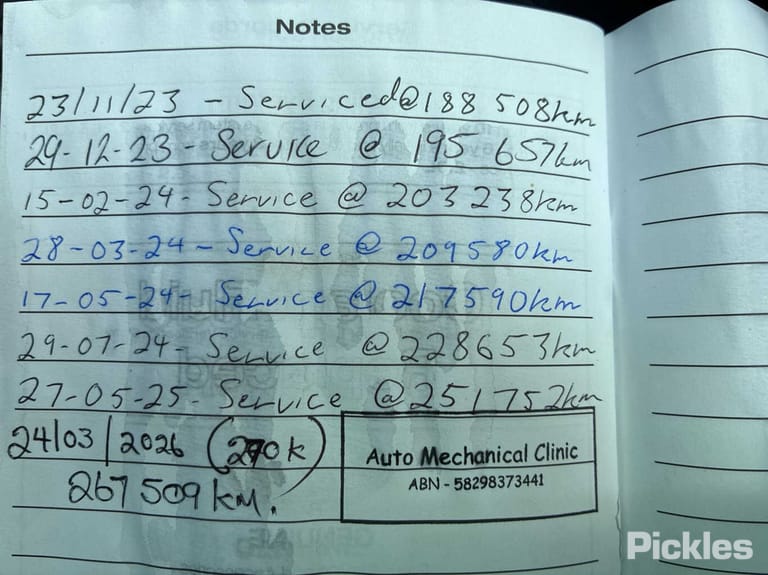 Notes
23/11/23 - Serviced @ 188 508km
29-12-23 - Service @ 195 657km
15-02-24 - Service @ 203 238km
28-03-24 - Service @ 209580km
17-05-24 - Service @ 217590km
29-07-24 - Service @ 228653km
27-05-25 - Service @ 251752km
24/03/2026 (270k)
267 509 KM.
Auto Mechanical Clinic
ABN - 58298373441
Pickles